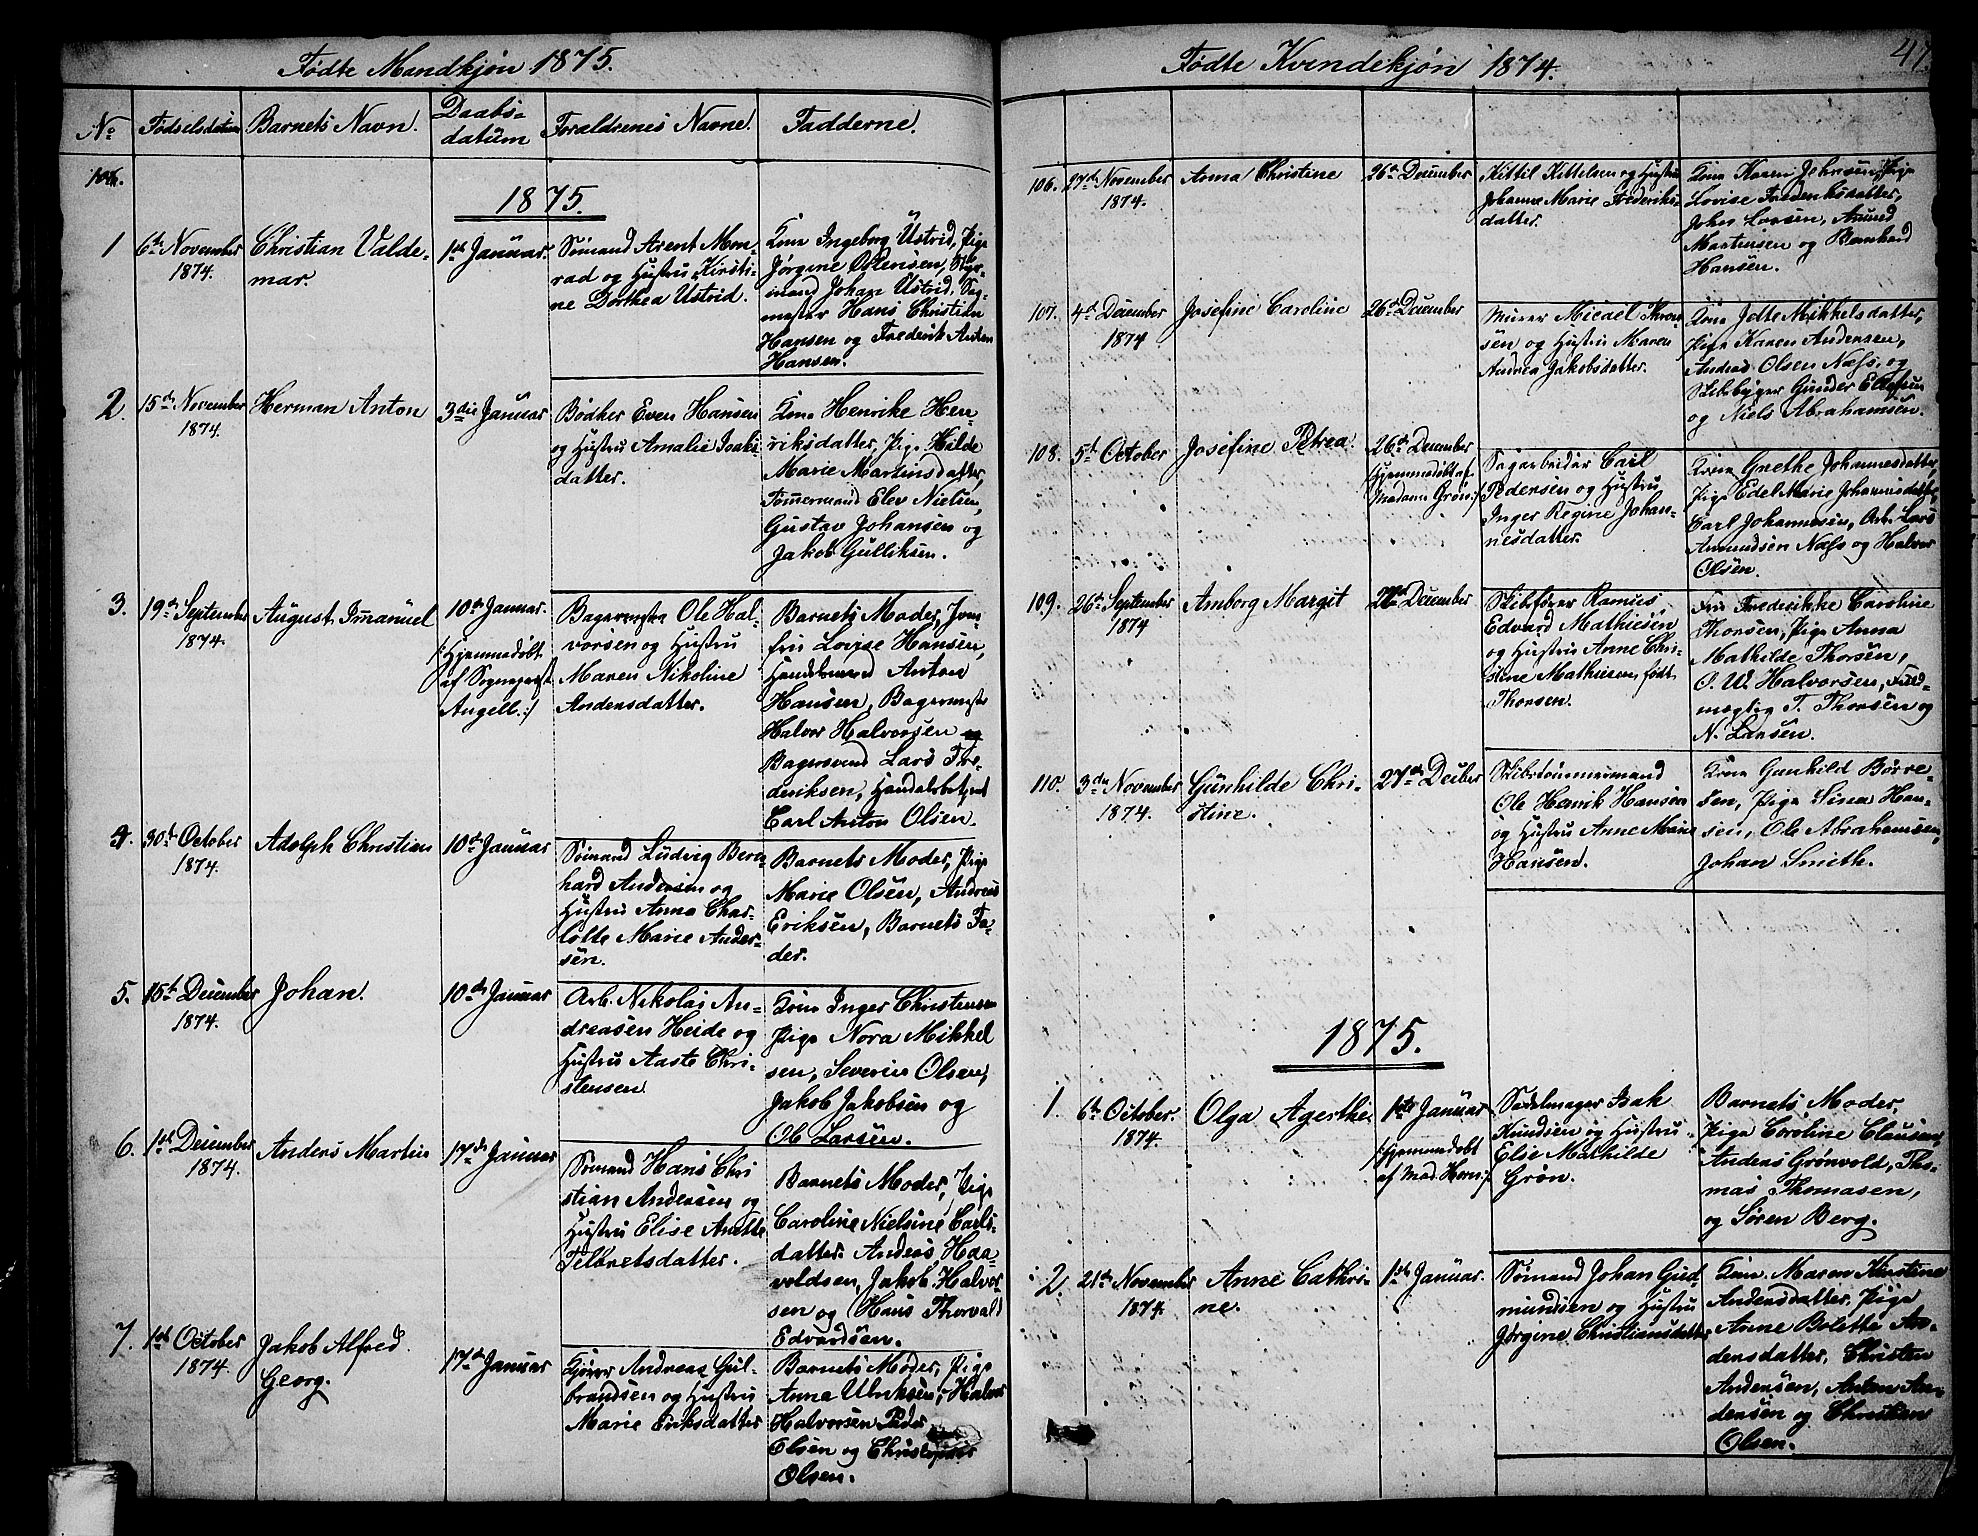 Födte Mandkjön 1875.
No
Födselsdatum
Barnets Navn.
Daabs-
datum
Foraldrenes Navne.
Fadderne.
1875.
1
6te November
1874.
Christian Valde-
mar.
1ste Januar.
Sömand Arent Mon
rad og Hustru Kirsti-
ne Dorthea Ustrid.
Kone Ingeborg Ustrid, Pige
Jörgine Ostensen, Styr-
mand Johan Ustrid, Sag-
mester Hans Christian
Hansen og Frederik Anton
Hansen.
2
15de November
1874.
Herman Anton
3die Januar
Bödker Even Hansen
og Hustru Amalie Isaks
datter.
Kone Henrike Hen
riksdatter, Pige Hilde
Marie Martinsdatter,
Tömermand Elev Nielsen,
Gustav Johansen og
Jakob Gulliksen.
3.
19de September
1874.
August Imanuel
10de Januar.
/:Hjemmedöbt
af Sognepræst
Angell.:/
Bagermester Ole Hal-
vorsen og Hustru
Maren Nikoline
Andersdatter.
Barnets Moder, Jom-
fru Lovise Hansen,
Handelsmand Anton
Hansen, Bagermester
Halvor Halvorsen og
Bagersvend Lars Fre-
deriksen, Handelsbetjent
Carl Anton Olsen.
4.
30te October
1874.
Adolph Christian
10de Januar
Sömand Ludvig Bern
hard Andersen og
Hustru Anna Char-
lotte Marie Ander-
sen.
Barnets Moder, Pige
Marie Olsen, Andreas
Eriksen, Barnets Fa-
der.
5.
15de December
1874.
Johan.
10de Januar
Arb. Nikolai An-
dreasen Heide og
Hustru Aaste Chri-
stensen.
Kone Inger Christensen
Pige Nora Mikkel
sen, Severin Olsen,
Jakob Jakobsen og
Ole Larsen.
6.
1ste December
1874.
Anders Martin
17de Januar
Sömand Hans Chri
stian Andersen og
Hustru Elise Anette
Telbretsdatter.
Barnets Moder, Pige
Caroline Nielsine Carls-
datter Anders Haa-
voldsen, Jakob Halvor-
sen og Hans Thorvald
Edvardsen.
7.
1ste October
1874.
Jakob Alfred
Georg.
17de Januar
Kjörer Andreas Gul-
brandsen og Hustru
Marie Eriksdatter
Barnets Moder, Pige
Anna Ulriksen, Halvor
Halvorsen Peder
Olsen og Christopher
Olsen.
Födte Kvindekjön 1874.
47.
106.
27de November
1874.
Anna Christine
26de December
Kittil Kittelsen og Hustru
Johanne Marie Frederiks-
datter.
Kone Karen Johnsen, Pige
Lovise Frederiksdatter,
John Larsen, Amund
Martinsen og Bernhard
Hansen.
107.
4de December
1874
Josefine Caroline
26de December
Murer Micael Thron-
sen og Hustru Maren
Andrea Jakobsdatter.
Kone Jotte Mikkelsdatter,
Pige Karen Andersen,
Andreas Olsen Næss, og
Skibbyger Gunder Ellefsen
og Niels Abrahamsen.
108.
5te October
Josefine Petrea.
26de December
/:Hjemmedöbt af
Madame Grön:/
Sagarbeider Carl
Pedersen og Hustru
Inger Regine Johan-
nesdatter.
Kone Grethe Johannesdatter,
Pige Edel Marie Johannesdatter,
Carl Johannesen, Arb. Lars
Amundsen Næss og Halvor
Olsen.
109.
26de September
1874
Amborg Margit
27de December
Skibsförer Rasmus
Edvard Mathiesen
og Hustru Anne Chri-
stine Mathiesen, født
Thorsen.
Fru Frederikke Caroline
Thorsen, Pige Anna
Mathilde Thorsen,
O. W. Halvorsen, Fuld-
mægtig T. Thorsen og
N. Larsen.
110.
3die November
1874.
Gunhilde Chri-
stine.
27de Decber
Skibstömmermand
Ole Henrik Hansen
og Hustru Anne Marie
Hansen.
Kone Gunhild Börre-
sen, Pige Sina Han-
sen, Ole Abrahamsen,
Johan Smith.
1875.
1.
6te October.
1874.
Olga Agerthe
1ste Januar
/:Hjemmedöbt
af Mad. Horn:/
Sadelmager Isak
Knudsen og Hustru
Elise Mathilde
Grön.
Barnets Moder,
Pige Caroline Clausen,
Anders Grönvold, Tho-
mas Thomasen,
og Sören Berg.
2.
21de November
1874.
Anne Cathri-
ne.
1ste Januar.
Sömand Johan Gud
mundsen og Hustru
Jörgine Christiansdatter
Kone Maren Kirstine
Andersdatter, Pige
Anne Bolette An-
dersdatter, Christen
Andersen, Anton An-
dersen og Christian
Olsen.